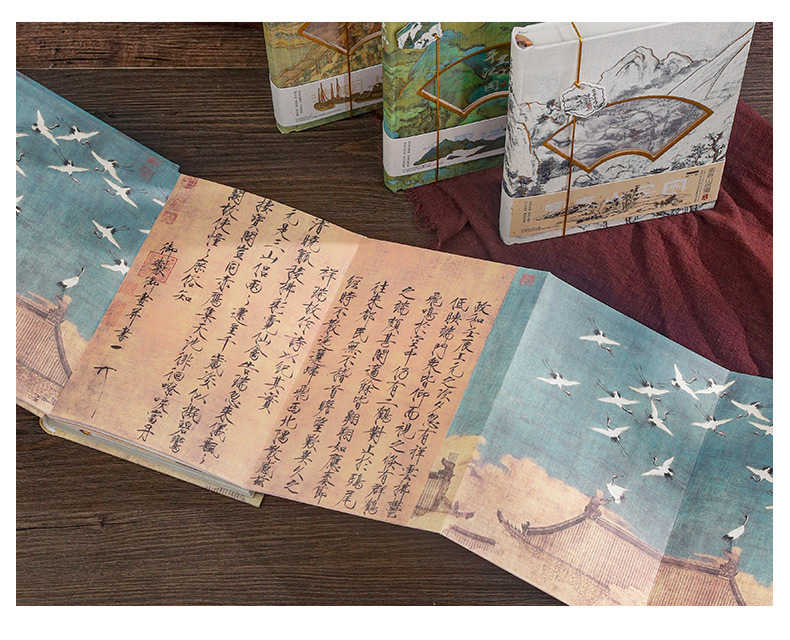 政和壬辰上元之次夕忽有祥雲拂鬱
低映端門衆皆仰而視之倐有群鶴
飛鳴於空中仍有二鶴對止於鴟尾
之端頗甚閒適餘皆翱翔如應奏節
往來都民無不稽首瞻望歎異久之
經時不散迤邐歸飛西北隅散感茲
祥瑞故作詩以紀其實
清曉觚稜拂彩霓仙禽告瑞忽來儀飄々
元是三山侶兩々還呈千歲姿似擬碧鸞
棲寶閣豈同赤鴈集天池徘徊嘹唳當丹
闕故使憧々庶俗知
御製御畫并書